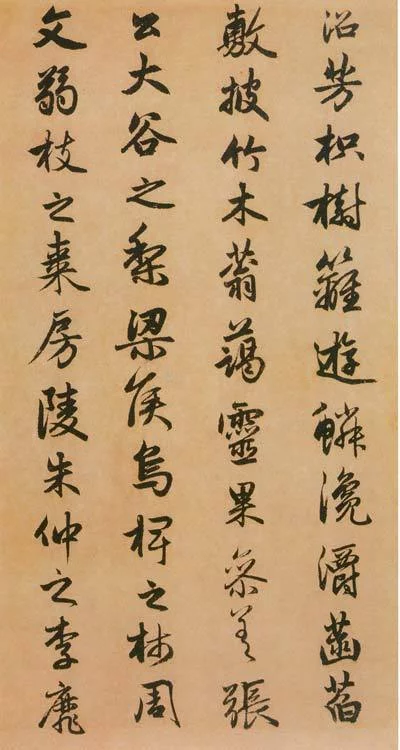 沼芳枳樹籬遊鱗瀺灂菡萏
敷披竹木蓊藹靈果參差張
公大谷之梨梁侯烏椑之柿周
文弱枝之棗房陵朱仲之李靡